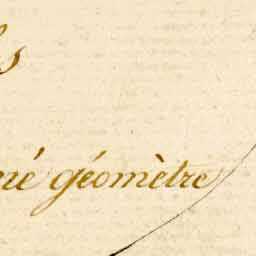 né géomètre